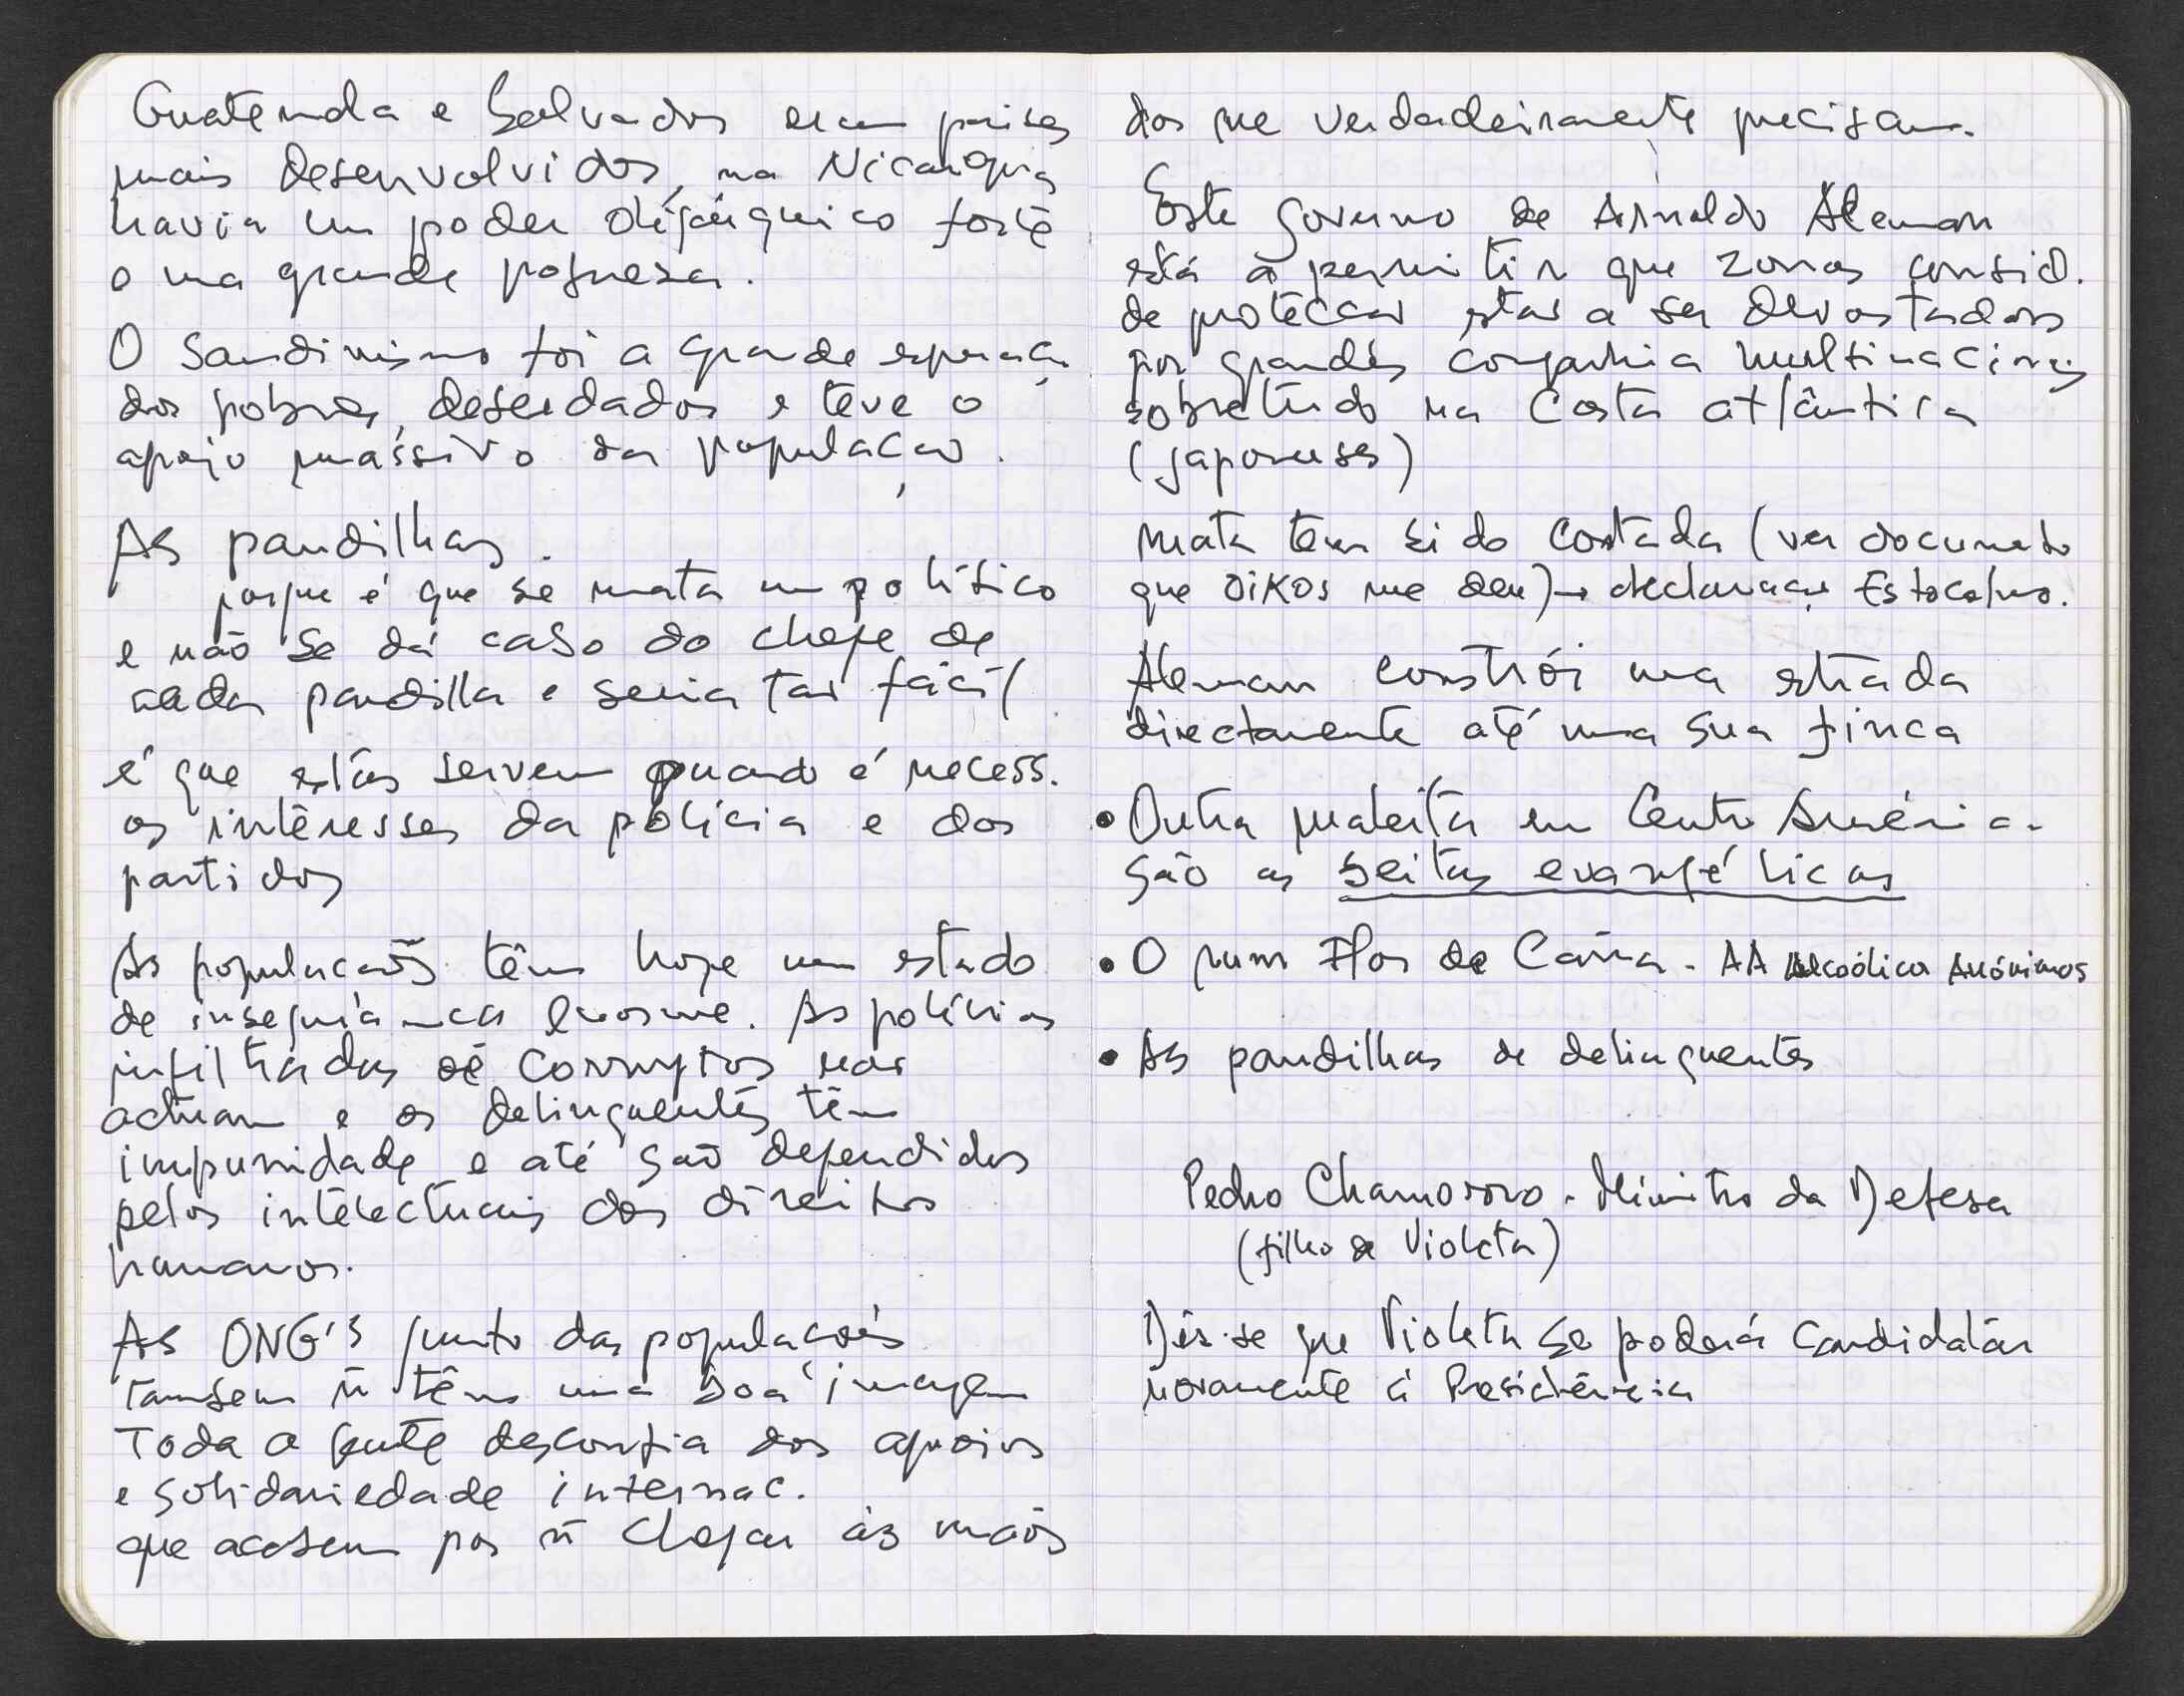 Guatemala e Salvador eram paises
mais desenvolvidos, na Nicarágua
havia um poder oligárquico forte
e uma grande pobresa.
O Sandinismo foi a grande esperança
dos pobres, deserdados e teve o
apoio massivo da população.
As pandilhas.
porque é que se mata um político
e não se dá caso do chefe de
cada pandilla e seria tão fácil
é que estas servem quando é necess.
os interesses da polícia e dos
partidos
As populacões têm hoje um estado
de insegurança enorme. As polícias
infiltradas de corruptos não
actuam e os delinquentes têm
impunidade e até são defendidos
pelos intelectuais dos direitos
humanos.
As ONG's junto das populações
tambem ñ têm uma boa imagem
Toda a gente desconfia dos apoios
e solidariedade internac.
que acabem por ñ chegar às mãos
dos que verdadeiramente precisam.
Este governo de Arnaldo Aleman
está a permitir que zonas consid.
de protecção estão a ser devastadas
por grandes companhia multinacionais
sobretudo na Costa atlântica
(japoneses)
Mata tem sido cortada (ver documento
que OIKOS me deu) → declaração Estocolmo.
Aleman constrói uma estrada
directamente até uma sua finca
• Outra maleita em Centro América
são as seitas evangélicas
• O rum Flor de Caña - AA Alcoólicos Anónimos
• As pandilhas de delinquentes
Pedro Chamorro - Ministro da Defesa
(filho de Violeta)
Diz-se que Violeta se poderá candidatar
novamente à Presidência